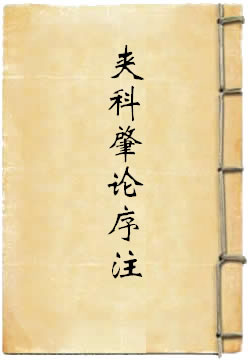 夹科肇论序注